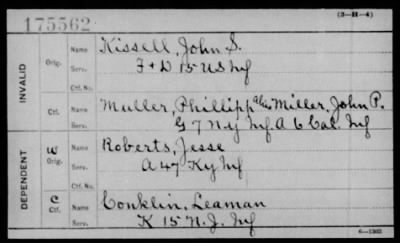 (3-H-4)
175562
INVALID
Orig.
Name Kissell, John S.
Serv. F + D 15 US Inf
Ctf. No.
Ctf.
Name Muller, Phillipp alias Miller, John P.
Serv. G 7 N.Y Inf. A 6 Cal. Inf
DEPENDENT
W
Orig.
Name Roberts, Jesse
Serv. A 47 Ky Inf
Ctf. No.
C
Ctf.
Name Conklin, Leaman
Serv. K 15 N. J. Inf
6-1303